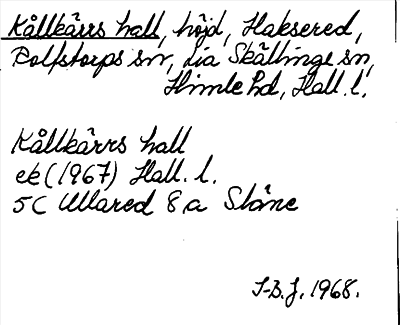 Kållkärrs hall, höjd, Haksered,
Rolfstorps sn, Lia Skällinge sn,
Himle hd, Hall. l.
Kållkärrs hall
ek (1967) Hall. l.
5C Ullared 8 a Släne
J-B. J. 1968.